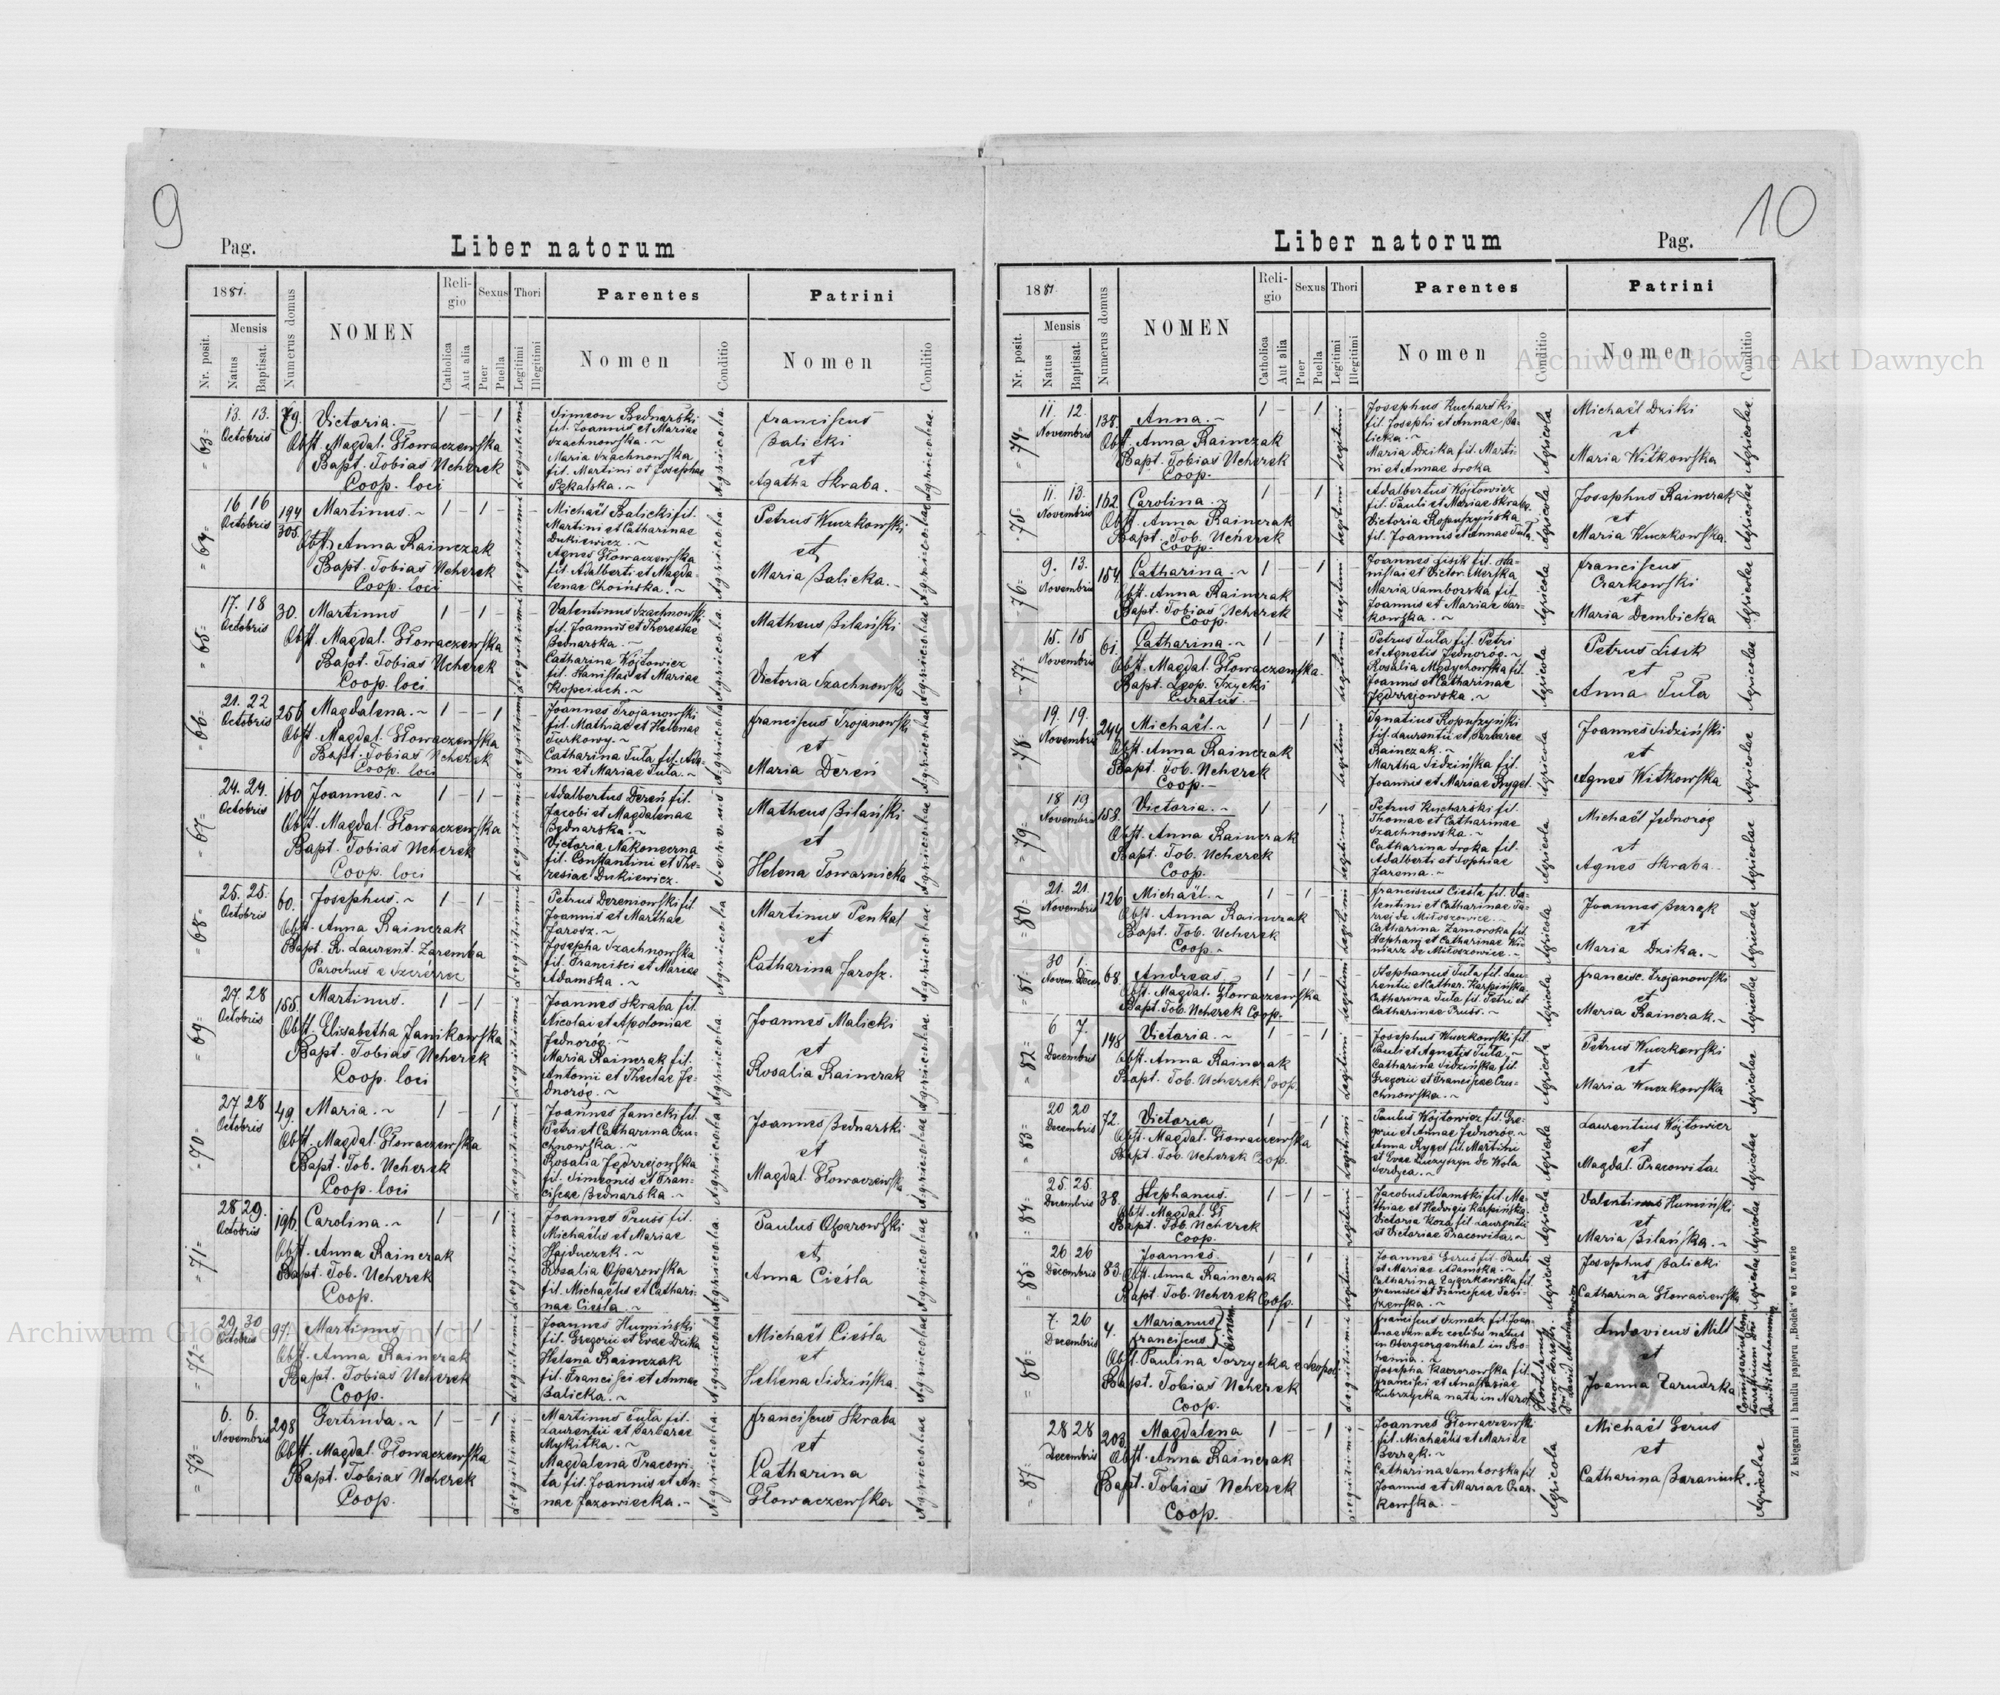 9
Pag.
Liber natorum
1881.
Nr. posit.
Mensis
Natus
Baptisat.
Numerus domus
NOMEN
Religio
Catholica
Aut alia
Sexus
Puer
Puella
Thori
Legitimi
Illegitimi
Parentes
Nomen
Conditio
Patrini
Nomen
Conditio
= 63 =
13. 13.
Octobris
Victoria. ~
Obst. Magdal. Głowaczewska
Bapt. Tobias Ucherek
Coop. loci
Legitimi
Simeon Bednarski
fil. Joannis et Mariae
Szachnowska. ~
Maria Szachnowska
fil. Martini et Josephae
Pękalska. ~
Agricola
Franciscus
Balicki
et
Agatha Skraba.
Agricolae
= 64 =
16 16
Octobris
194
305
Martinus. ~
Obst. Anna Rainczak
Bapt. Tobias Ucherek
Coop. loci
Legitimi
Michaël Balicki fil.
Martini et Catharinae
Dukiewicz. ~
Agnes Głowaczewska
fil. Adalberti et Magda-
lenae Choińska. ~
Agricola
Petrus Kuczkowski
et
Maria Balicka. -
Agricolae
= 65 =
17. 18
Octobris
30.
Martinus
Obst. Magdal. Głowaczewska
Bapt. Tobias Ucherek
Coop. loci
Legitimi
Valentinus Szachnowski
fil. Joannis et Theresiae
Bednarska. ~
Catharina Wojtowicz
fil. Stanislai et Mariae
Kopciuch. ~
Agricola
Matheus Bilański
et
Victoria Szachnowska
Agricolae
= 66 =
21. 22
Octobris
256
Magdalena. ~
Obst. Magdal. Głowaczewska
Bapt. Tobias Ucherek
Coop. loci
Legitimi
Joannes Trojanowski
fil. Mathiae et Helenae
Turkowy. ~
Catharina Tuła fil. Ada-
mi et Mariae Tuła. ~
Agricola
Franciscus Trojanowski
et
Maria Dereń
Agricolae
= 67 =
24. 24.
Octobris
160
Joannes. ~
Obst. Magdal. Głowaczewska
Bapt. Tobias Ucherek
Coop. loci
Legitimi
Adalbertus Dereń fil.
Jacobi et Magdalenae
Bednarska. ~
Victoria Nakoneczna
fil. Constantini et The-
resiae Dukiewicz.
Servus
Matheus Bilański
et
Helena Towarnicka
Agricolae
= 68 =
25. 25.
Octobris
60.
Josephus. ~
Obst. Anna Rainczak
Bapt. R. Laurent. Zaremba
Parochus e Szczerzec
Legitimi
Petrus Dereniowski fil.
Joannis et Marthae
Jarosz. ~
Josepha Szachnowska
fil. Francisci et Mariae
Adamska. ~
Agricola
Martinus Penkal
et
Catharina Jarosz.
Agricolae
= 69 =
27. 28
Octobris
155.
Martinus.
Obst. Elisabetha Janikowska
Bapt. Tobias Ucherek
Coop. loci
Legitimi
Joannes Skraba fil.
Nicolai et Apoloniae
Jednoróg. ~
Maria Rainczak fil.
Antonii et Theclae Je-
dnoróg. ~
Agricola
Joannes Malicki
et
Rosalia Rainczak
Agricolae
= 70 =
27 28
Octobris
49.
Maria. ~
Obst. Magdal. Głowaczewska
Bapt. Tob. Ucherek
Coop. loci
Legitimi
Joannes Janicki fil.
Petri et Catharina Czu-
chnowska. ~
Rosalia Jędrzejowska
fil. Simeonis et Fran-
ciscae Bednarska. ~
Agricola
Joannes Bednarski
et
Magdal. Głowaczewska
Agricolae
= 71 =
28 29.
Octobris
196.
Carolina. ~
Obst. Anna Rainczak
Bapt. Tob. Ucherek
Coop.
Legitimi
Joannes Pruss fil.
Michaëlis et Mariae
Hajduczek. ~
Rosalia Oparowska
fil. Michaëlis et Cathari-
nae Cieśla. ~
Agricola
Paulus Oparowski
et
Anna Cieśla
Agricolae
= 72 =
29. 30
Octobris
97.
Martinus
Obst. Anna Rainczak
Bapt. Tobias Ucherek
Coop.
Legitimi
Joannes Humiński
fil. Gregorii et Evae Dzika
Helena Rainczak
fil. Francisci et Annae
Balicka. ~
Agricola
Michaël Cieśla
et
Helena Sidzińska.
Agricolae
= 73 =
6. 6.
Novembris
298
Gertruda. ~
Obst. Magdal. Głowaczewska
Bapt. Tobias Ucherek
Coop.
Legitimi
Martinus Tuła fil.
Laurentii et Barbarae
Mykitka. ~
Magdalena Pracowi-
ta fil. Joannis et An-
nae Jazowiecka. ~
Agricola
Franciscus Skraba
et
Catharina
Głowaczewska
Agricolae
10
Liber natorum
Pag.
1881.
Nr. posit.
Mensis
Natus
Baptisat.
Numerus domus
NOMEN
Religio
Catholica
Aut alia
Sexus
Puer
Puella
Thori
Legitimi
Illegitimi
Parentes
Nomen
Conditio
Patrini
Nomen
Conditio
= 74 =
11. 12.
Novembris
138.
Anna. ~
Obst. Anna Rainczak
Bapt. Tobias Ucherek
Coop.
Legitimi
Josephus Kucharski
fil. Josephi et Annae Ba-
licka. ~
Maria Dzika fil. Marti-
ni et Annae Sroka
Agricola
Michaël Dziki
et
Maria Witkowska
Agricolae
= 75 =
11. 13.
Novembris
162.
Carolina. ~
Obst. Anna Rainczak
Bapt. Tob. Ucherek
Coop.
Legitimi
Adalbertus Wójtowicz
fil. Pauli et Mariae Skraba.
Victoria Ropuszyńska
fil. Joannis et Annae Tuła.
Agricola
Josephus Rainczak
et
Maria Kuczkowska.
Agricolae
= 76 =
9. 13.
Novembris
154.
Catharina. ~
Obst. Anna Rainczak
Bapt. Tobias Ucherek
Coop.
Legitimi
Joannes Lisik fil. Sta-
nislai et Victor. Merska
Maria Samborska fil.
Joannis et Mariae Czar-
kowska. ~
Agricola
Franciscus
Czarkowski
et
Maria Dembicka
Agricolae
= 77 =
15. 15
Novembris
61.
Catharina. ~
Obst. Magdal. Głowaczewska.
Bapt. Leop. Izycki
Curatus
Legitimi
Petrus Tuła fil. Petri
et Agnetis Jednoróg. ~
Rosalia Medychowska fil.
Joannis et Catharinae
Jędrzejowska. ~
Agricola
Petrus Lisik
et
Anna Tuła
Agricolae
= 78 =
19. 19.
Novembris
244
Michaël. ~
Obst. Anna Rainczak
Bapt. Tob. Ucherek
Coop.
Legitimi
Ignatius Ropuszyński
fil. Laurentii et Barbarae
Rainczak. ~
Martha Sidzińska fil.
Joannis et Mariae Rygel
Agricola
Joannes Sidziński
et
Agnes Witkowska
Agricolae
= 79 =
18 19
Novembris
158.
Victoria. ~
Obst. Anna Rainczak
Bapt. Tob. Ucherek
Coop.
Legitimi
Petrus Kucharski fil.
Thomae et Catharinae
Szachnowska. ~
Catharina Sroka fil.
Adalberti et Sophiae
Jarema. ~
Agricola
Michaël Jednoróg
et
Agnes Skraba.
Agricolae
= 80 =
21. 21.
Novembris
126
Michaël. ~
Obst. Anna Rainczak
Bapt. Tob. Ucherek
Coop. ~
Legitimi
Franciscus Cieśla fil. Va-
lentini et Catharinae
de Miłoszowice. ~
Catharina Zamorska fil.
Stephani et Catharinae
de Miłoszowice. ~
Agricola
Joannes Bezrąk
et
Maria Dzika. ~
Agricolae
= 81 =
30 1.
Novem. Decem.
68.
Andreas
Obst. Magdal. Głowaczewska
Bapt. Tob. Ucherek Coop.
Legitimi
Stephanus Tuła fil. Lau-
rentii et Cather. Karpińska
Catharina Tuła fil. Petri et
Catharinae Pruss. ~
Agricola
Francisc. Trojanowski
et
Maria Rainczak. ~
Agricolae
= 82 =
6 7.
Decembris
148
Victoria. ~
Obst. Anna Rainczak
Bapt. Tob. Ucherek Coop.
Legitimi
Josephus Kuczkowski fil.
Pauli et Agnetis Tuła. ~
Catharina Sidzińska fil.
Gregorii et Franciscae Czu-
chnowska. ~
Agricola
Petrus Kuczkowski
et
Maria Kuczkowska
Agricolae
= 83 =
20 20
Decembris
72.
Victoria
Obst. Magdal. Głowaczewska
Bapt. Tob. Ucherek Coop.
Legitimi
Paulus Wojtowicz fil. Gre-
gorii et Annae Jednoróg. ~
Anna Rygel fil. Martini
et Evae Kuczyszyn de Wola
Agricola
Laurentius Wojtowicz
et
Magdal. Pracowita.
Agricolae
= 84 =
25. 25.
Decembris
38.
Stephanus.
Obst. Magdal. Gł
Bapt. Tob. Ucherek
Coop.
Legitimi
Jacobus Adamski fil. Ma-
thiae et Hedvigis Karpińska.
Victoria Koza fil. Laurentii
et Victoriae Pracowita. ~
Agricola
Valentinus Humiński
et
Maria Bilańska. ~
Agricolae
= 85 =
26 26
Decembris
83.
Joannes.
Obst. Anna Rainczak
Bapt. Tob. Ucherek Coop.
Legitimi
Joannes Gerus fil. Pauli
et Mariae Adamska. ~
Catharina Zajzerkowska fil.
Francisci et Franciscae
Agricola
Josephus Balicki
et
Catharina Głowaczewska
Agricolae
= 86 =
7. 26
Decembris
4.
Marianus
Franciscus
binom.
Obst. Paulina Torzycka e Leopol.
Bapt. Tobias Ucherek
Coop.
Legitimi
Franciscus Szmatz fil. Joan-
nae Szmatz coelibis natus
in Obergeorgenthal in Bo-
hemia. ~
Josepha Kaczorowska fil.
Francisci et Anastasiae
Zubrzycka nata in
Ludovicus Milt
et
Joanna Zarudzka
= 87 =
28 28
Decembris
203.
Magdalena
Obst. Anna Rainczak
Bapt. Tobias Ucherek
Coop.
Legitimi
Joannes Głowaczewski
fil. Michaëlis et Mariae
Bezrąk. ~
Catharina Samborska fil.
Joannis et Mariae Czar-
kowska. -
Agricola
Michaël Gerus
et
Catharina Baraniuk.
Agricolae
Z księgarni i handlu papieru „Bodek“ we Lwowie
Archiwum Główne Akt Dawnych
Archiwum Główne Akt Dawnych